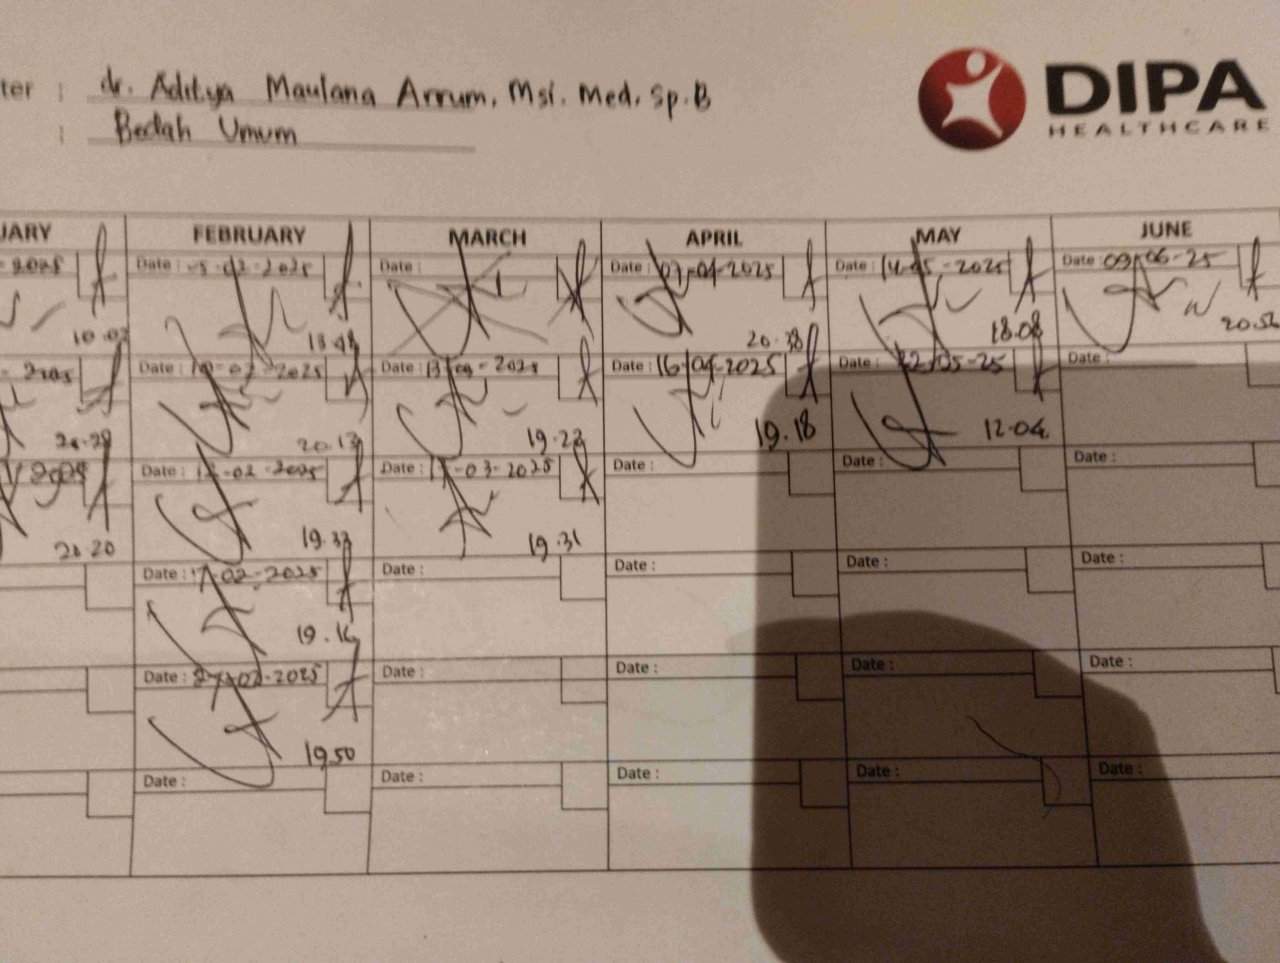 ter : dr. Aditya Maulana Arrum, Msi. Med, Sp.B
: Bedah Umum
DIPA
HEALTHCARE
UARY FEBRUARY MARCH APRIL MAY JUNE
2025 Date : -02-2025 Date : Date : 07-04-2025 Date : 14-05-2025 Date : 09-06-25
10.02 18.48 20.38 18.08
2025 Date : -02-2025 Date : 13-03-2025 Date : 16-04-2025 Date : 22-05-25 Date :
20.13 19.22 19.18 12.04
Date : -02-2025 Date : -03-2025 Date : Date : Date :
20.20 19.33 19.31
Date : 17-02-2025 Date : Date : Date : Date :
19.16
Date : 27-02-2025 Date : Date : Date : Date :
19.50
Date : Date : Date : Date : Date :